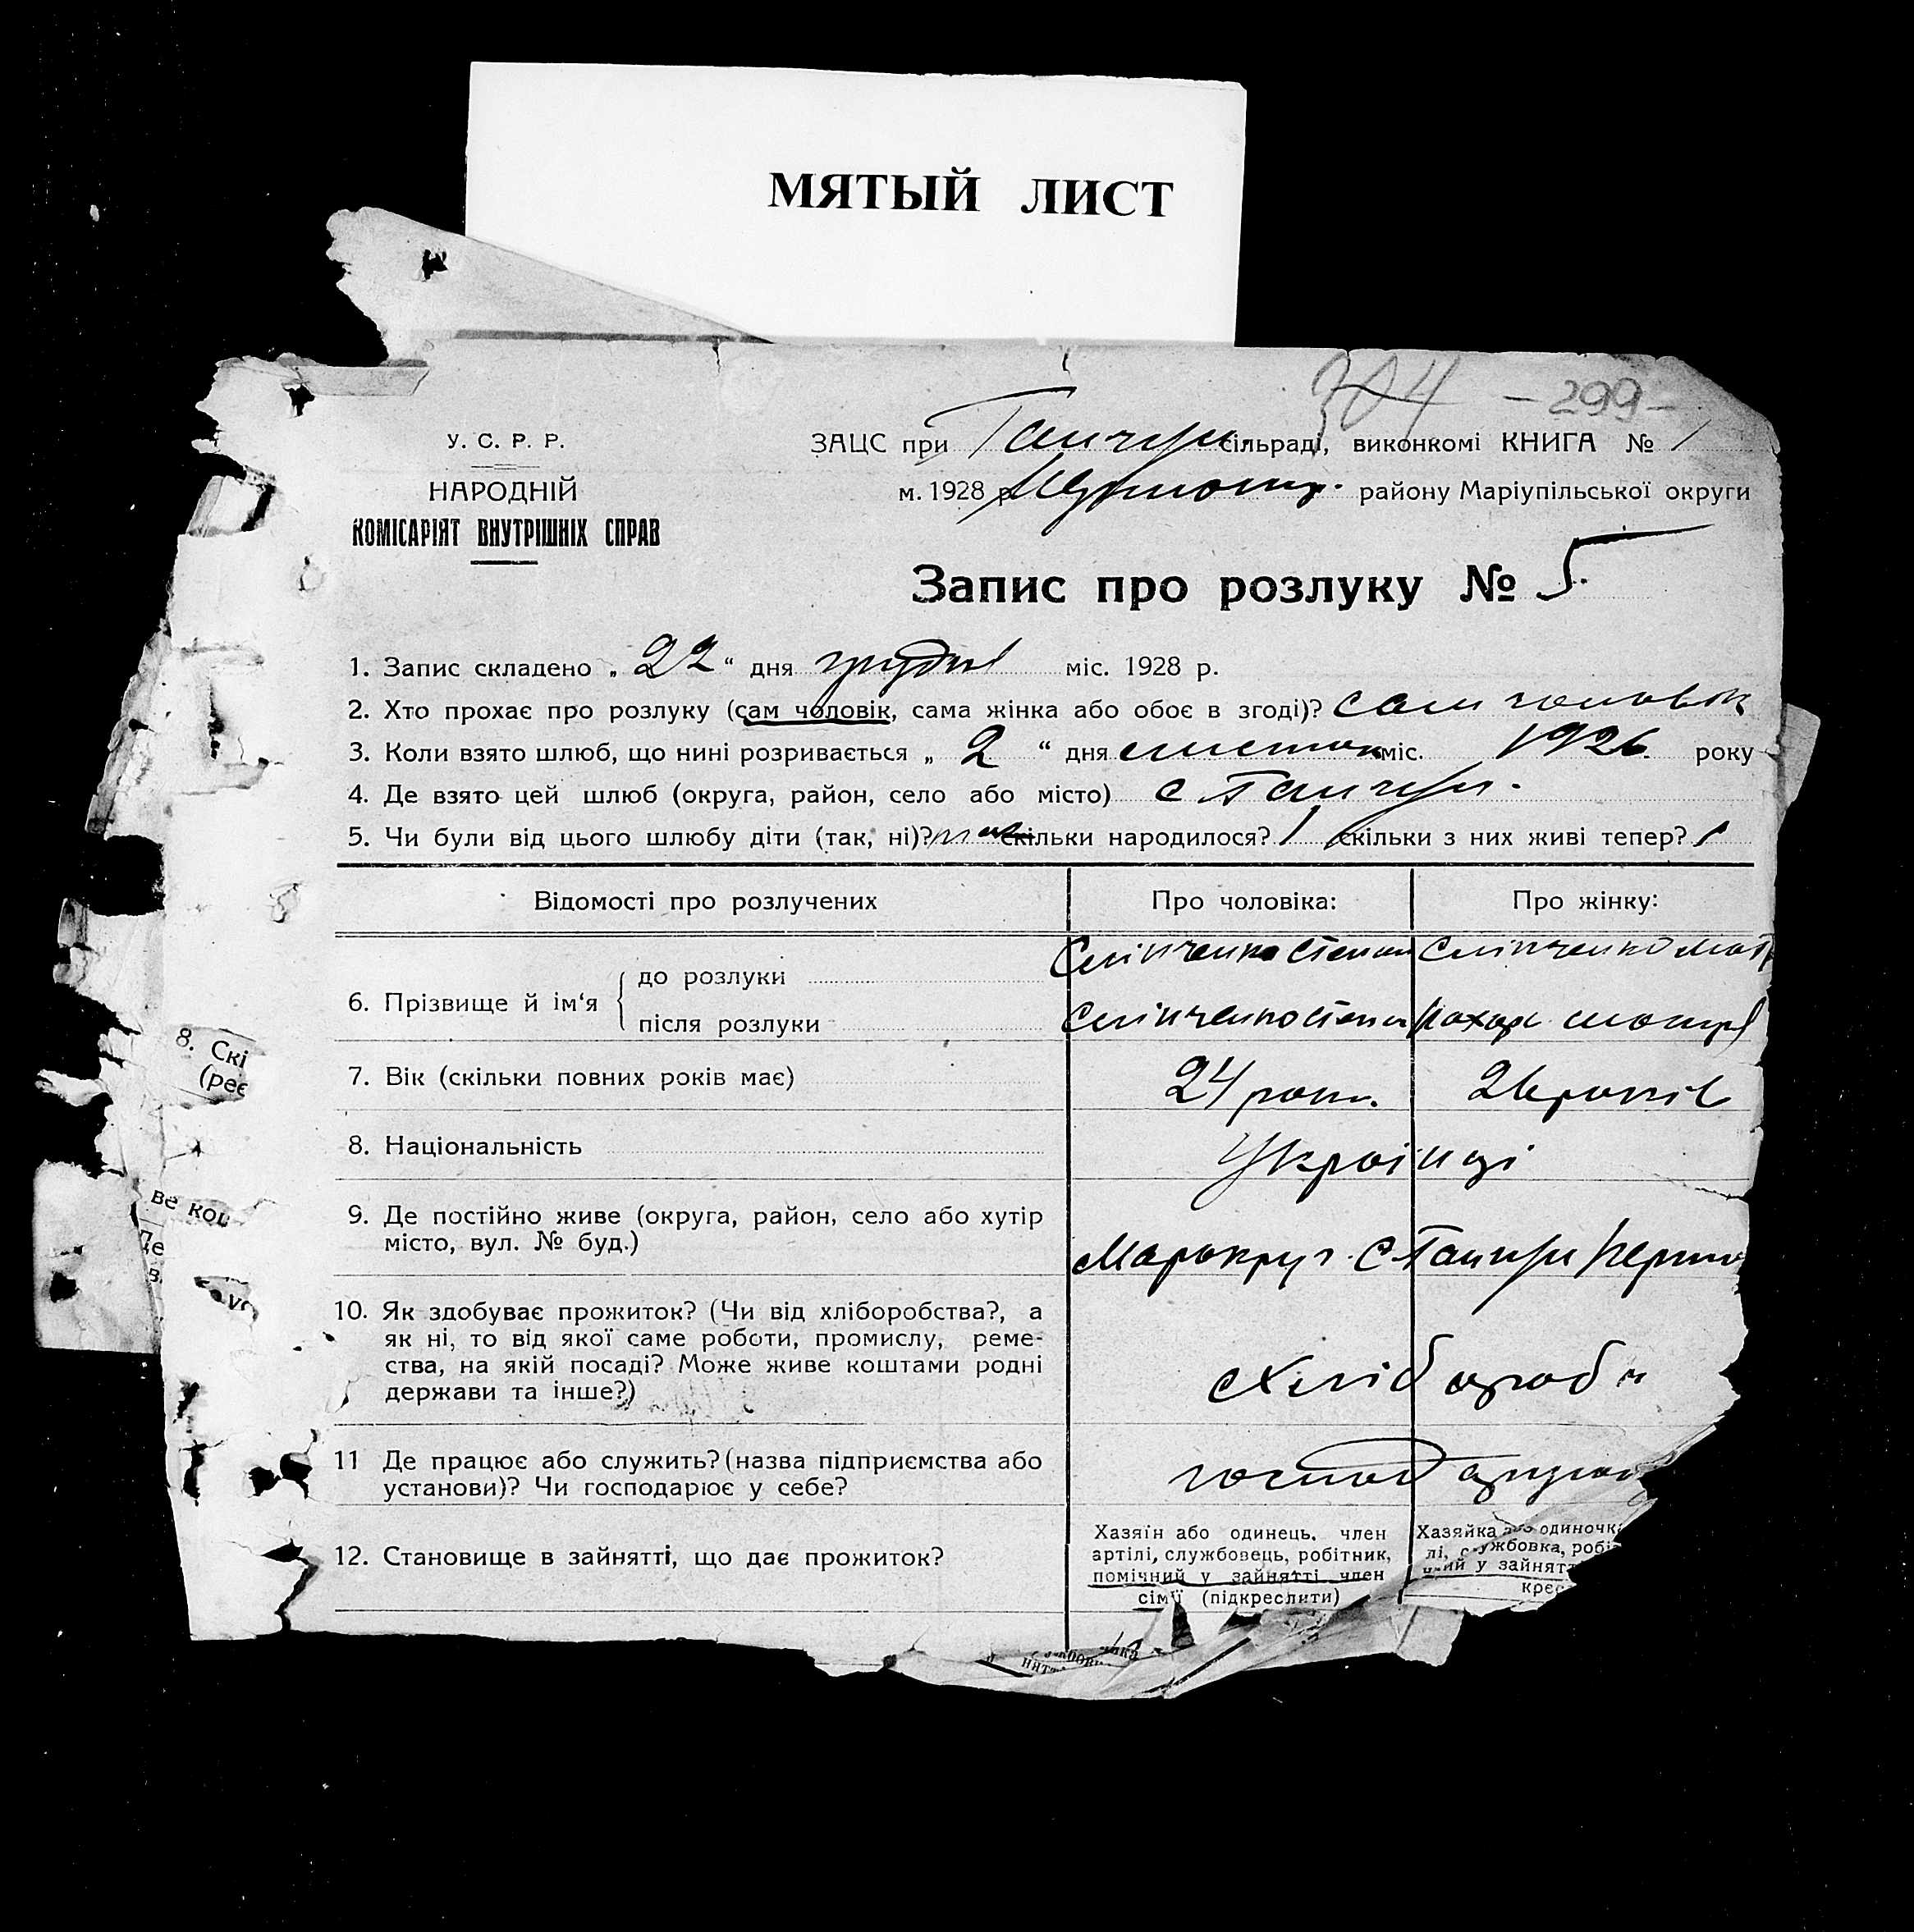 МЯТЫЙ ЛИСТ
304 - 299 -
У. С. Р. Р. ЗАЦС при сільраді, виконкомі КНИГА № 1
НАРОДНІЙ м. 1928 р. району Маріупільської округи
КОМІСАРІЯТ ВНУТРІШНІХ СПРАВ
Запис про розлуку № 5
1. Запис складено „ 22 “ дня грудня міс. 1928 р.
2. Хто прохає про розлуку (сам чоловік, сама жінка або обоє в згоді)? сам чоловік
3. Коли взято шлюб, що нині розривається „ 2 “ дня листоп міс. 1926 року
4. Де взято цей шлюб (округа, район, село або місто) с
5. Чи були від цього шлюбу діти (так, ні)? так скільки народилося? 1 скільки з них живі тепер? 1
Відомості про розлучених Про чоловіка: Про жінку:
6. Прізвище й ім‘я
до розлуки Слінченко Степан Слінченко Мот
після розлуки Слінченко Степан
7. Вік (скільки повних років має) 24 роки 26 років
8. Національність Українці
9. Де постійно живе (округа, район, село або хутір
місто, вул. № буд.) Марокруг с.
10. Як здобуває прожиток? (Чи від хліборобства?, а
як ні, то від якої саме роботи, промислу, реме-
ства, на якій посаді? Може живе коштами родні
держави та інше?) Хлібороби
11 Де працює або служить? (назва підприємства або
установи)? Чи господарює у себе?
12. Становище в зайнятті, що дає прожиток?
Хазяїн або одинець, член
артілі, службовець, робітник,
помічний у зайнятті член
сім'ї (підкреслити)
Хазяйка або одиночка
лі, службовка, робі
ний у зайнят
крес
8. Скі
(реє
ве кош
Де
в.